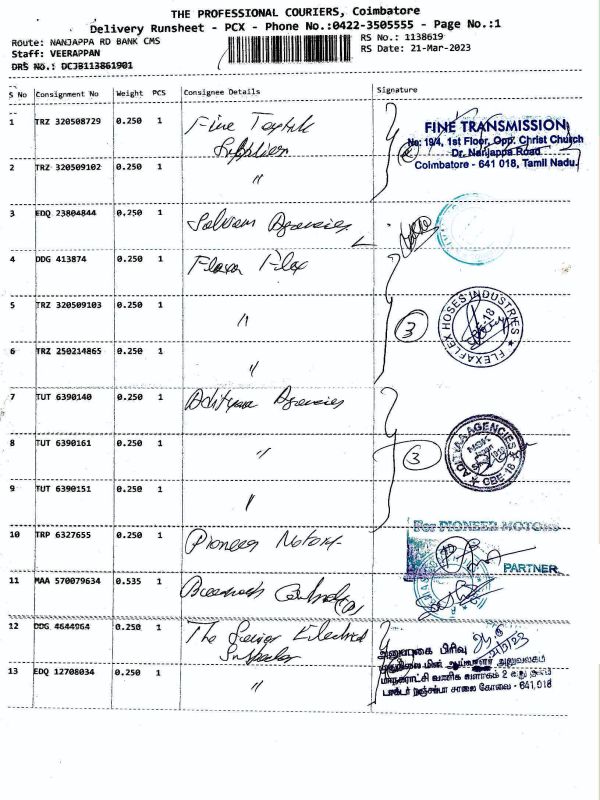 THE PROFESSIONAL COURIERS, Coimbatore
Delivery Runsheet - PCX - Phone No.:0422-3505555 - Page No.:1
Route: NANJAPPA RD BANK CMS
Staff: VEERAPPAN
DRS No.: DCJB113861901
RS No.: 1138619
RS Date: 21-Mar-2023
S No Consignment No Weight PCS Consignee Details Signature
1 TRZ 320508729 0.250 1 Fine
FINE TRANSMISSION
No: 19/4, 1st Floor, Opp. Christ Church
Dr. Nanjappa Road
Coimbatore - 641 018, Tamil Nadu.
2 TRZ 320509102 0.250 1 "
3 EDQ 23804844 0.250 1 Selvam Agencies
4 DDG 413874 0.250 1 Flexa Flex
5 TRZ 320509103 0.250 1 " 3
FLEXAFLEX HOSES INDUSTRIES
CBE-18
6 TRZ 250214865 0.250 1 "
7 TUT 6390140 0.250 1 Adityaa Agencies
8 TUT 6390161 0.250 1 " 3
ADITYAA AGENCIES
CBE-18
9 TUT 6390151 0.250 1 "
10 TRP 6327655 0.250 1 Pioneer Motors
For PIONEER MOTORS
PARTNER
11 MAA 570079634 0.535 1
12 DDG 4644964 0.250 1 The Senior Electrical
Inspector
அனுப்புகை பிரிவு
21/3/23
மாநகராட்சி வணிக வளாகம் 2 வது தளம்
டாக்டர் நஞ்சப்பா சாலை கோவை - 641 018
13 EDQ 12708034 0.250 1 "